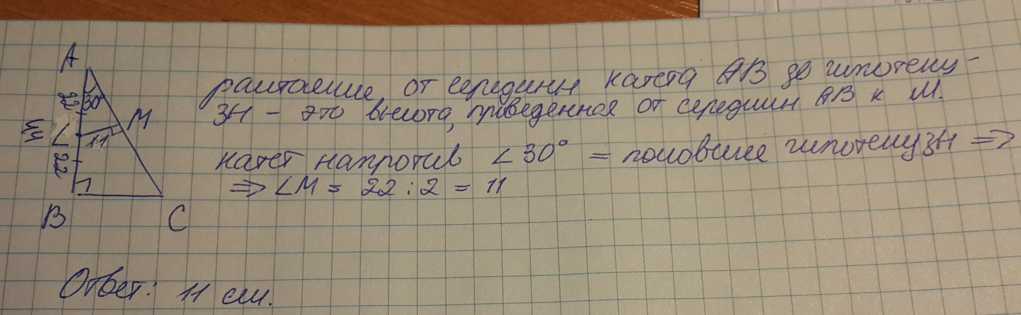 A
30°
22
44
L
M
11
22
B
C
растояние от середины катета AB до гипотену-
зы – это высота, приведенная от середины AB к M.
катет напротив ∠30° = половине гипотенузы ⇒
⇒ LM = 22 : 2 = 11
Ответ: 11 см.